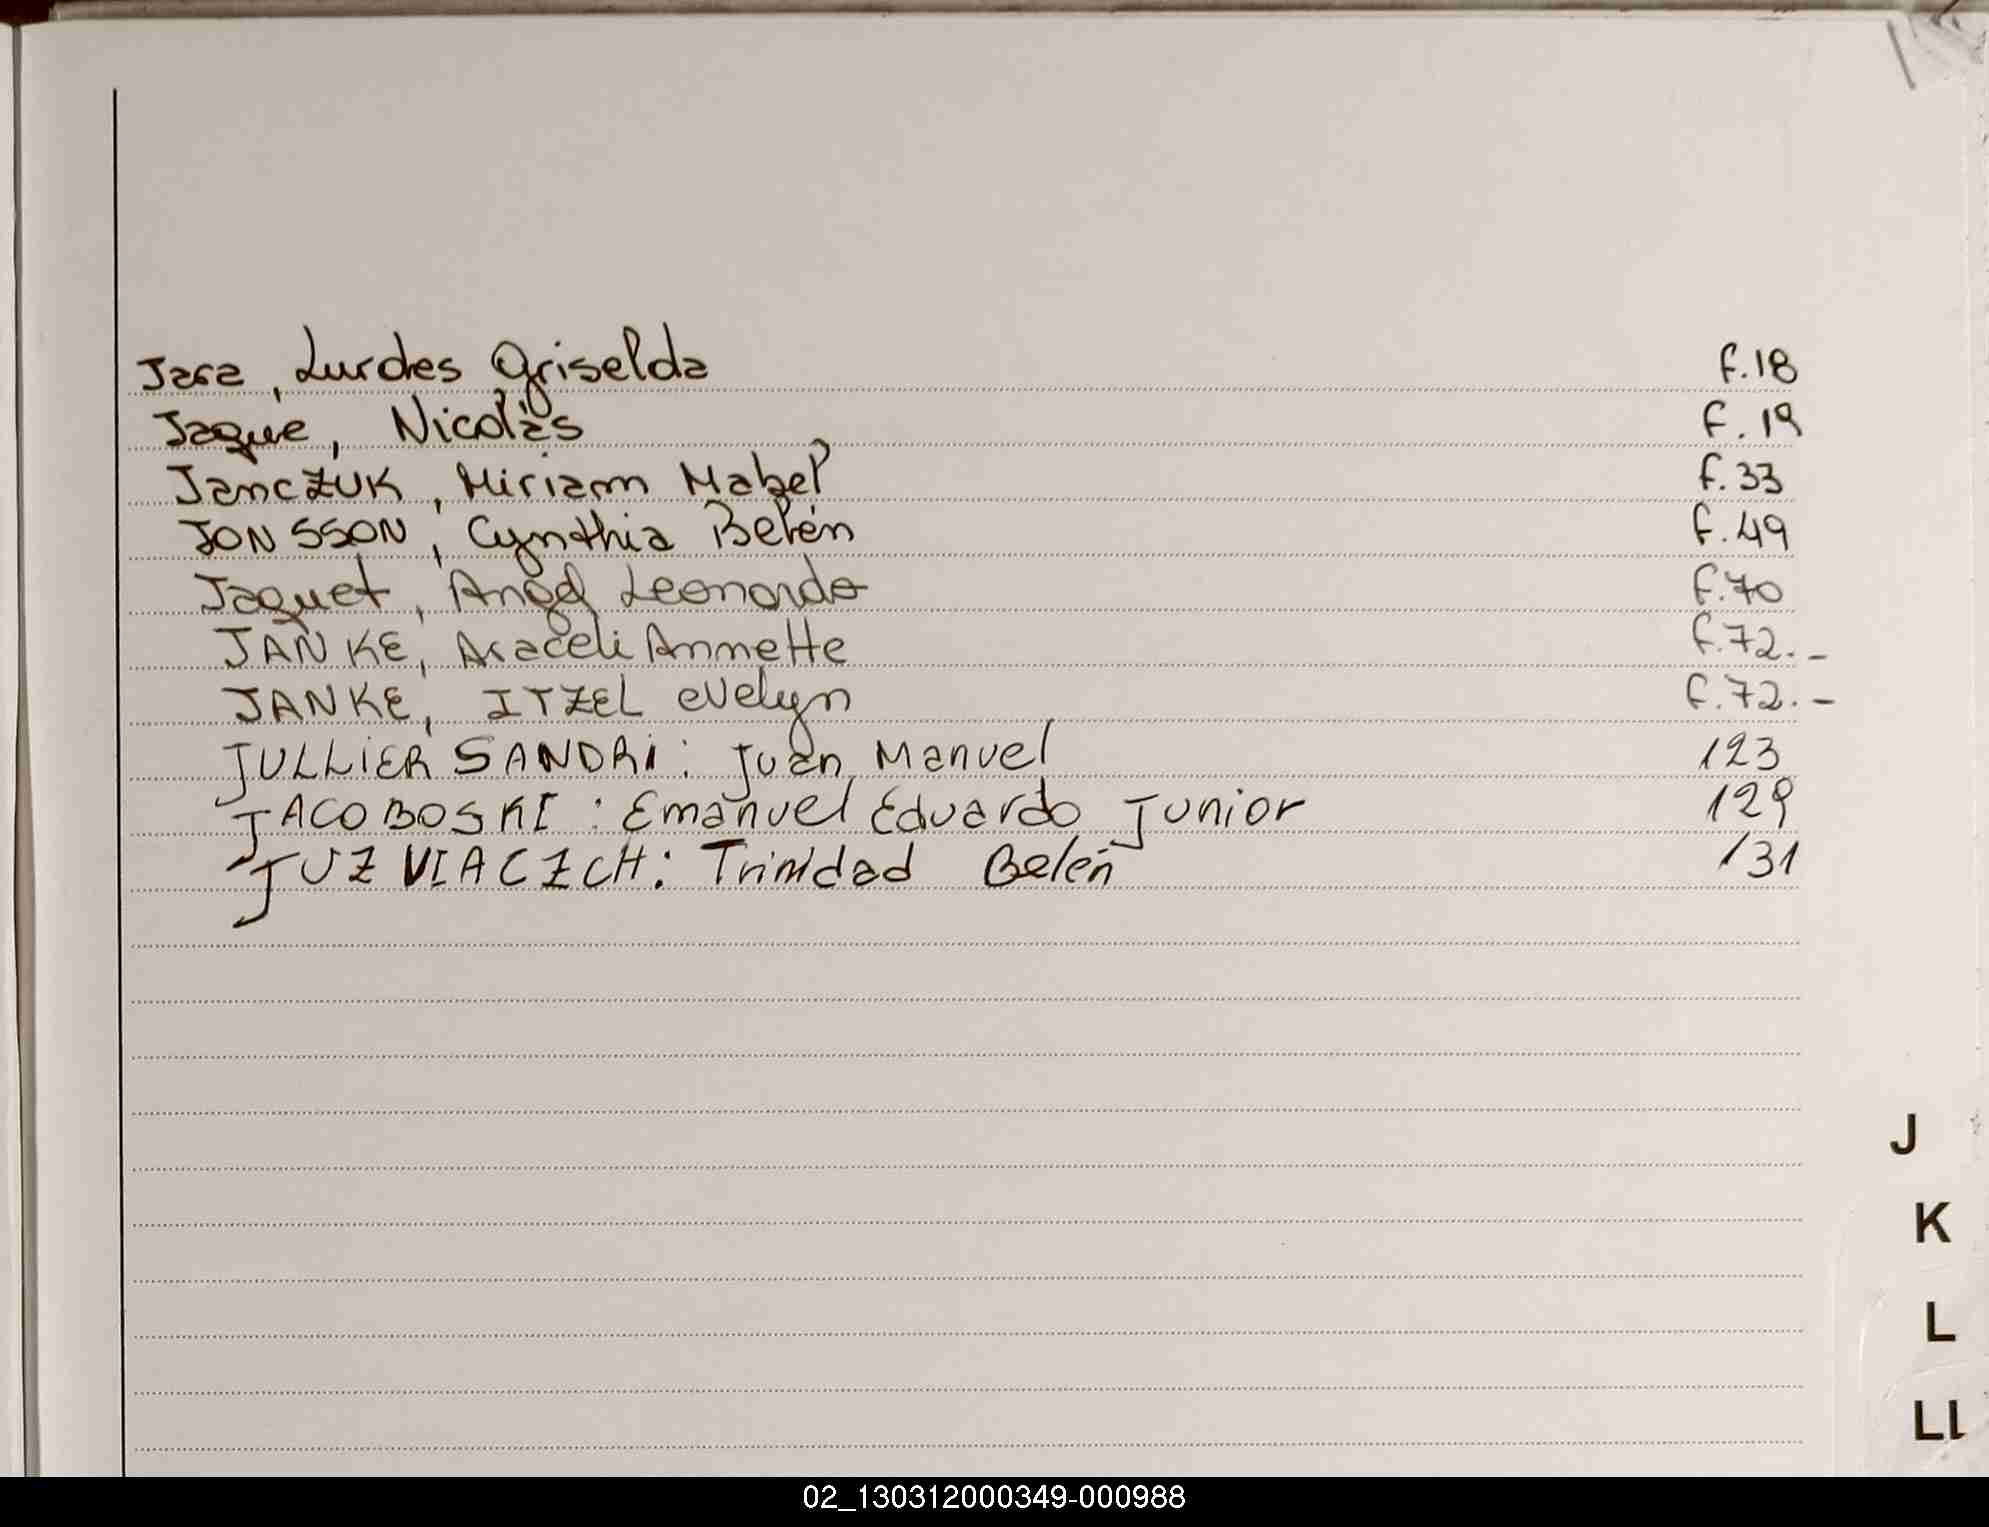 Jara, Lurdes Griselda f.18
Jaque, Nicolás f.19
Janczuk, Miriam Mabel f.33
JONSSON, Cynthia Belén f.49
Jaquet, Angel Leonardo f.70
JANKE, Araceli Annette f.72.-
JANKE, ITZEL evelyn f.72.-
JULLIER SANDRI: Juan Manuel 123
JACOBOSKI: Emanuel Eduardo Junior 129
JUZVIACZCH: Trinidad Belén 131
J
K
L
LL
02_130312000349-000988